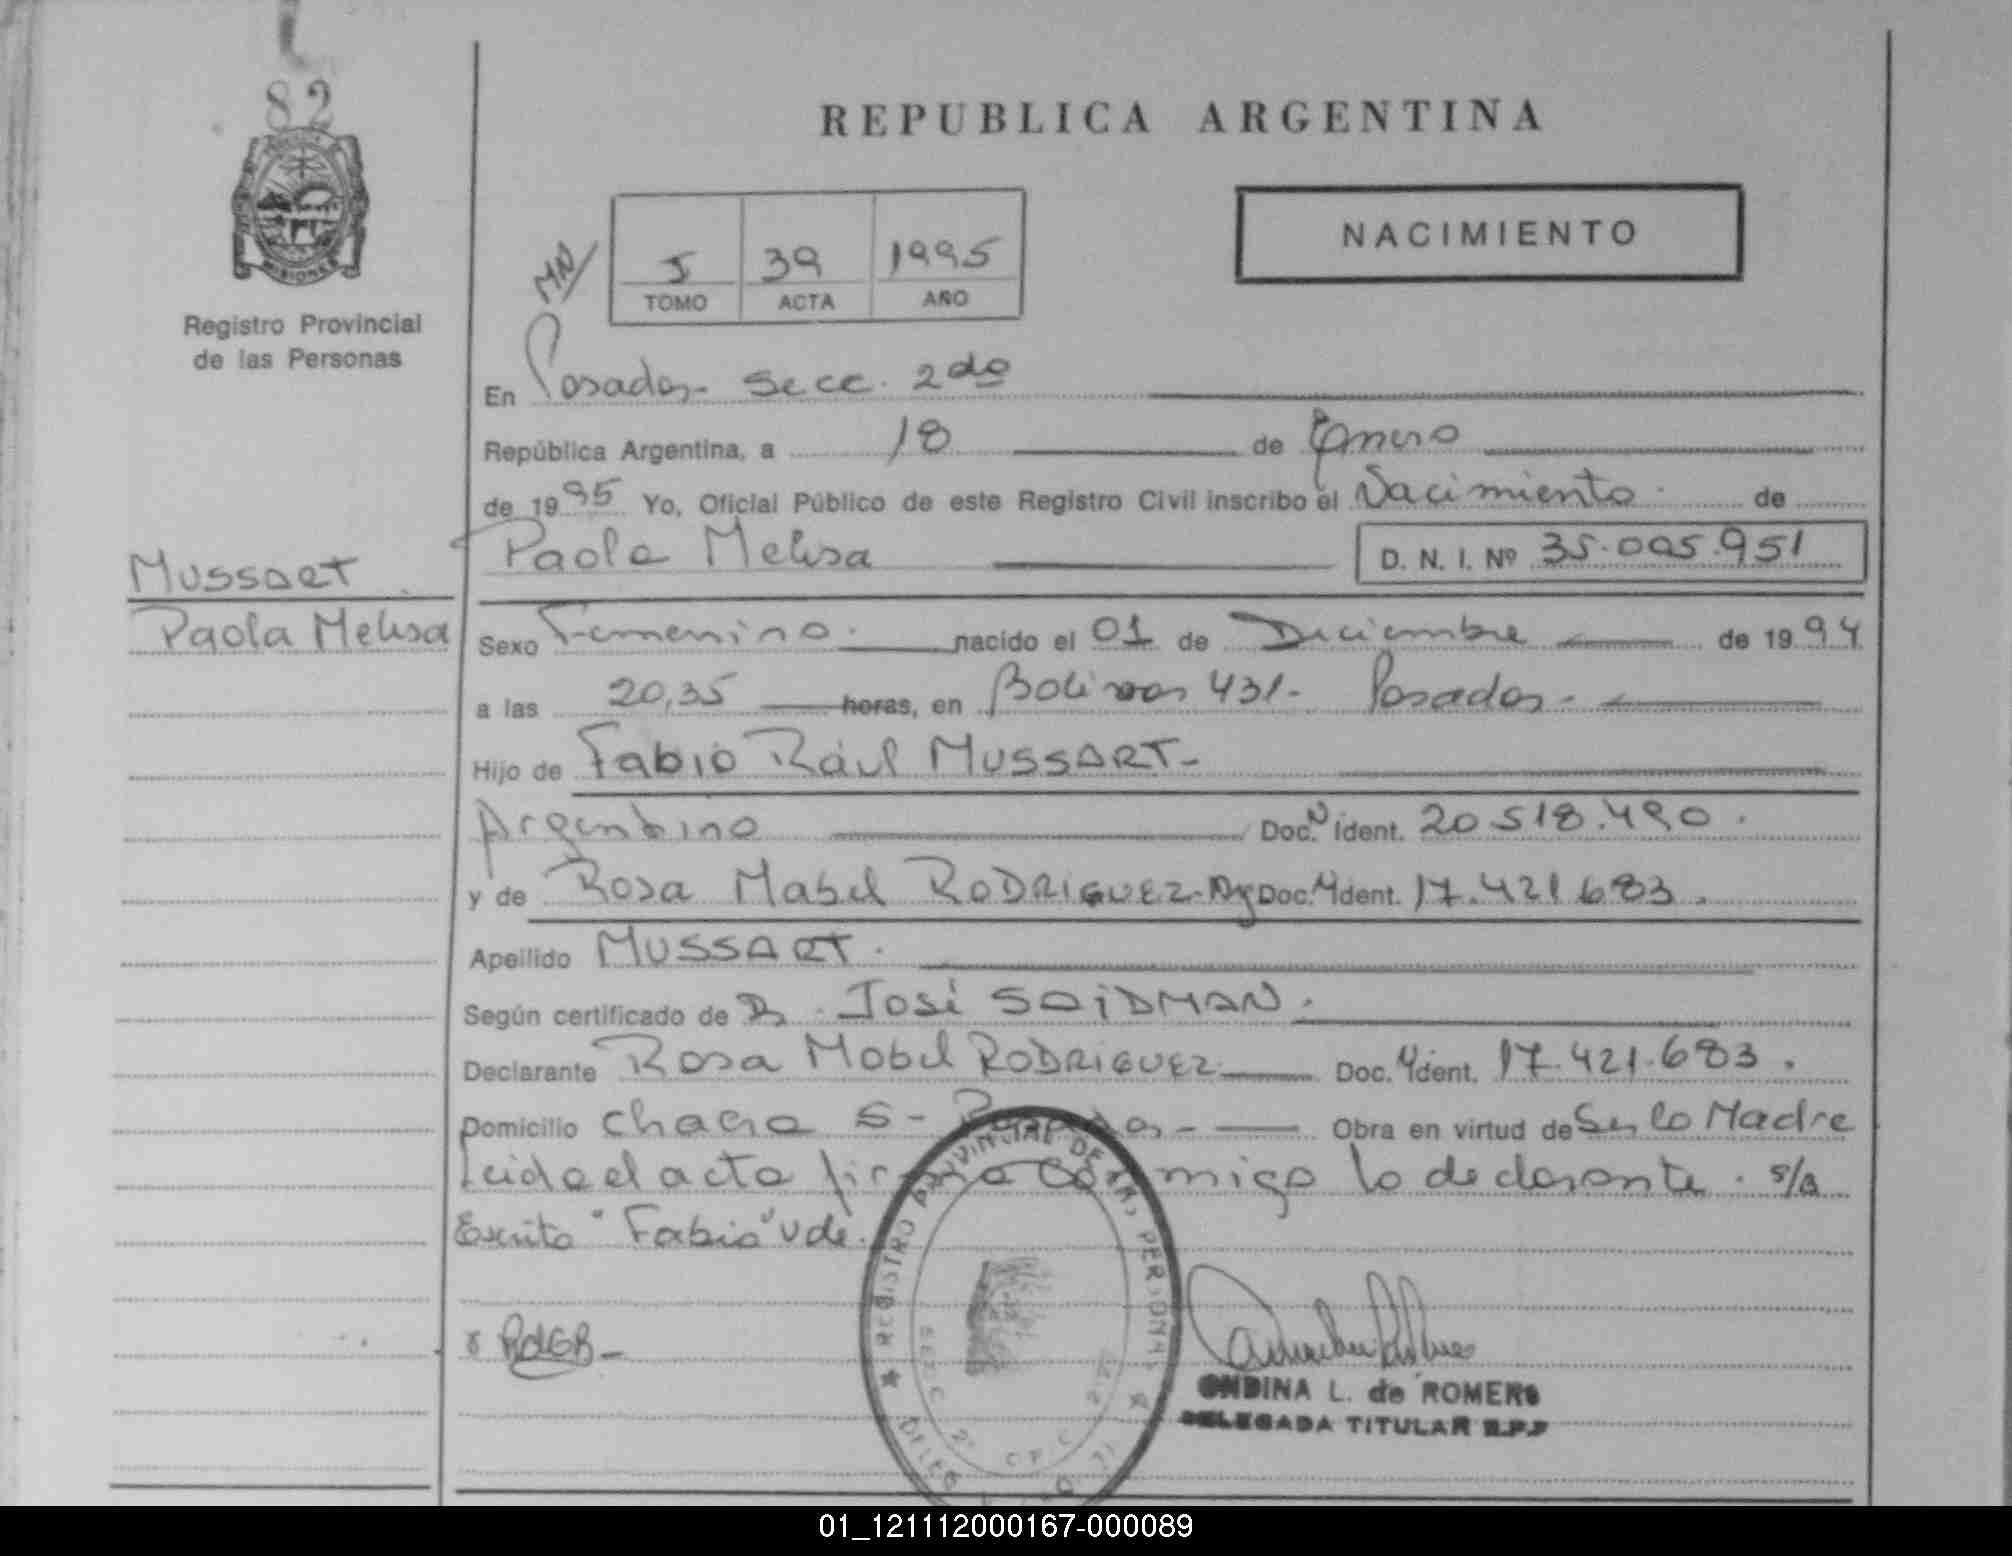 82
REPUBLICA ARGENTINA
MISIONES
Registro Provincial
de las Personas
MN
J 39 1995
TOMO ACTA AÑO
NACIMIENTO
En Posadas- Secc. 2da
República Argentina, a 18 de Enero
de 1995 Yo, Oficial Público de este Registro Civil inscribo el Nacimiento. de
Paola Melisa D. N. I. Nº 35.005.951
MUSSART
Paola Melisa
Sexo Femenino. nacido el 01 de Diciembre de 1994
a las 20,35 horas, en Bolivar 431- Posadas-
Hijo de Fabio Rául MUSSART-
Argentino Doc. N ident. 20 518.490.
y de Rosa Mabel RODRIGUEZ- Arg Doc. N ident. 17.421.683.
Apellido MUSSART.
Según certificado de Dr. José SAIDMAN.
Declarante Rosa Mabel RODRIGUEZ Doc. N ident. 17.421.683.
Domicilio Chacra 5- Posadas- Obra en virtud de Ser la Madre
Leida el acta firma conmigo la declarante. s/a
Escrito "Fabio" Vale.
REGISTRO PROVINCIAL DE LAS PERSONAS
SECC 2ª
DELEG
ONDINA L. de ROMERO
DELEGADA TITULAR R.P.P
01_121112000167-000089